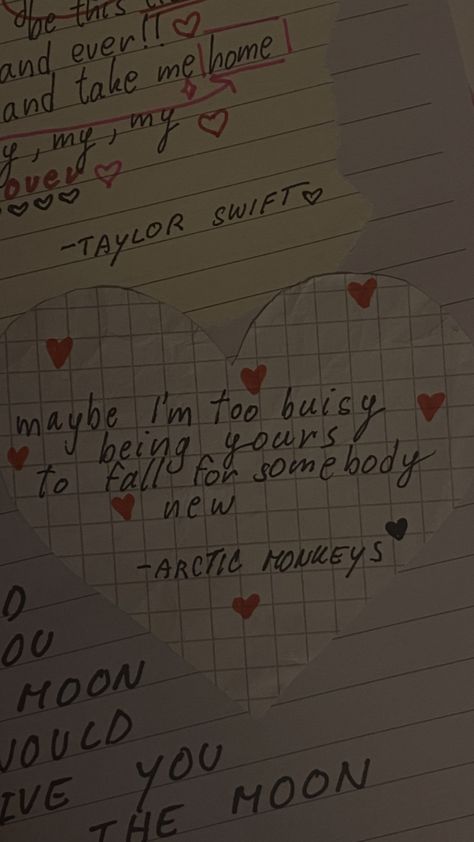 be this
and ever!!
and take me home
y, my, my
over
-TAYLOR SWIFT
maybe I'm too buisy
being yours
to fall for somebody
new
-ARCTIC MONKEYS
OU
MOON
WOULD
IVE YOU
THE MOON